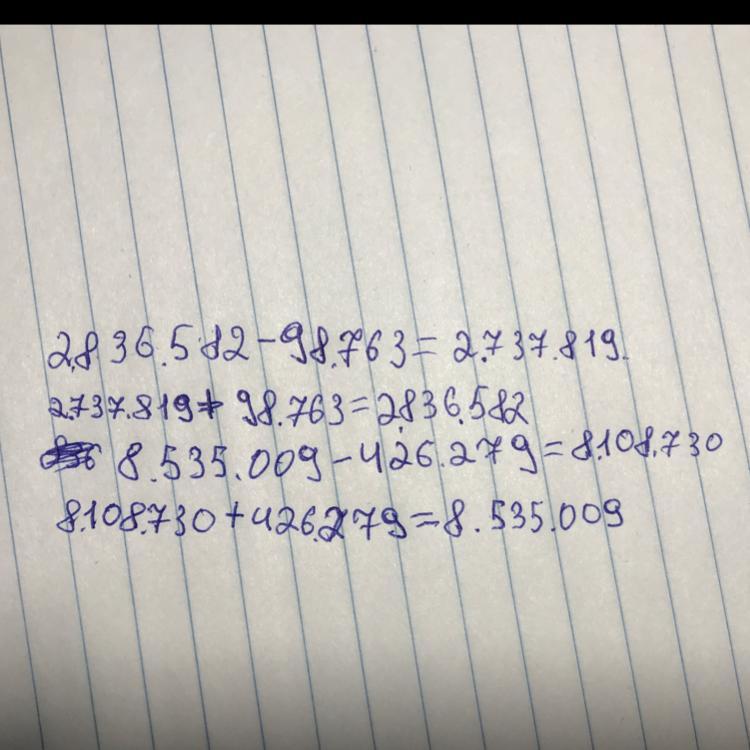 2.836.582-98.763=2.737.819.
2.737.819+98.763=2.836.582
8.535.009-426.279=8.108.730
8.108.730+426.279=8.535.009